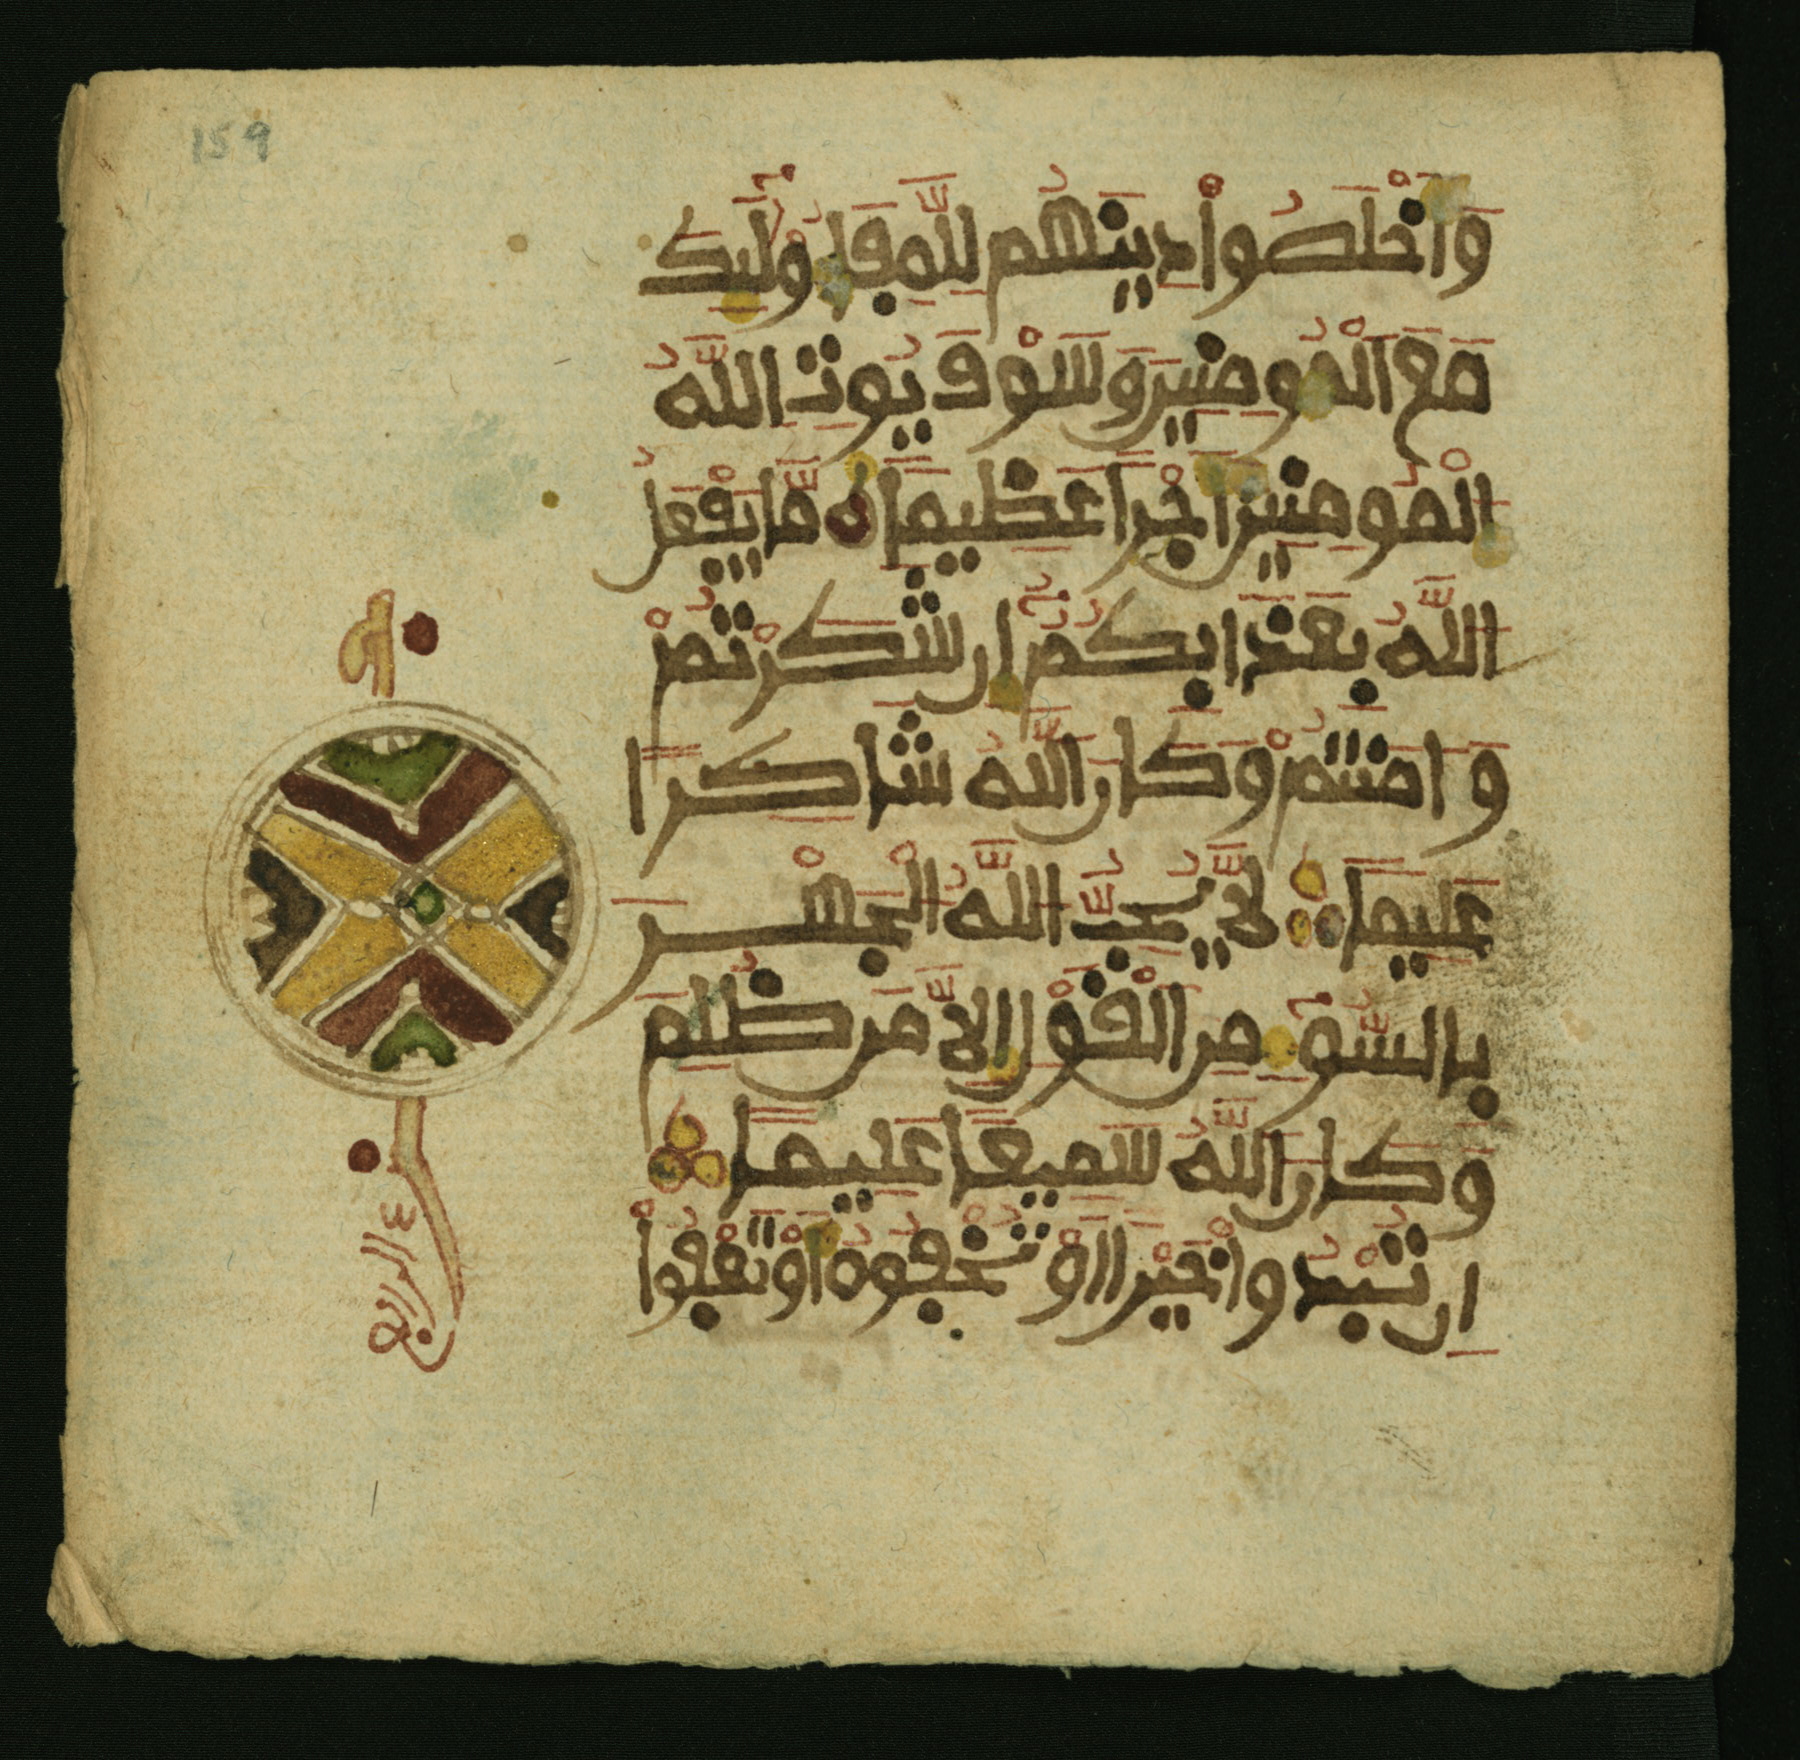 159
وَأَخْلَصُواْ دِينَهُمْ لِلَّهِ فَأُوْلَٰٓئِكَ
مَعَ ٱلْمُومِنِينَ وَسَوْفَ يُوتِ ٱللَّهُ
ٱلْمُومِنِينَ أَجْراً عَظِيماً ه مَّا يَفْعَلُ
ٱللَّهُ بِعَذَابِكُمُۥٓ إِن شَكَرْتُمْ
وَءَامَنتُمْ وَكَانَ ٱللَّهُ شَاكِراً
عَلِيماً لَّا يُحِبُّ ٱللَّهُ ٱلْجَهْرَ
بِٱلسُّوٓءِ مِنَ ٱلْقَوْلِ إِلَّا مَن ظُلِمَ
وَكَانَ ٱللَّهُ سَمِيعاً عَلِيماً
إِن تُبْدُواْ خَيْراً أَوْ تُخْفُوهُ أَوْ تَعْفُواْ